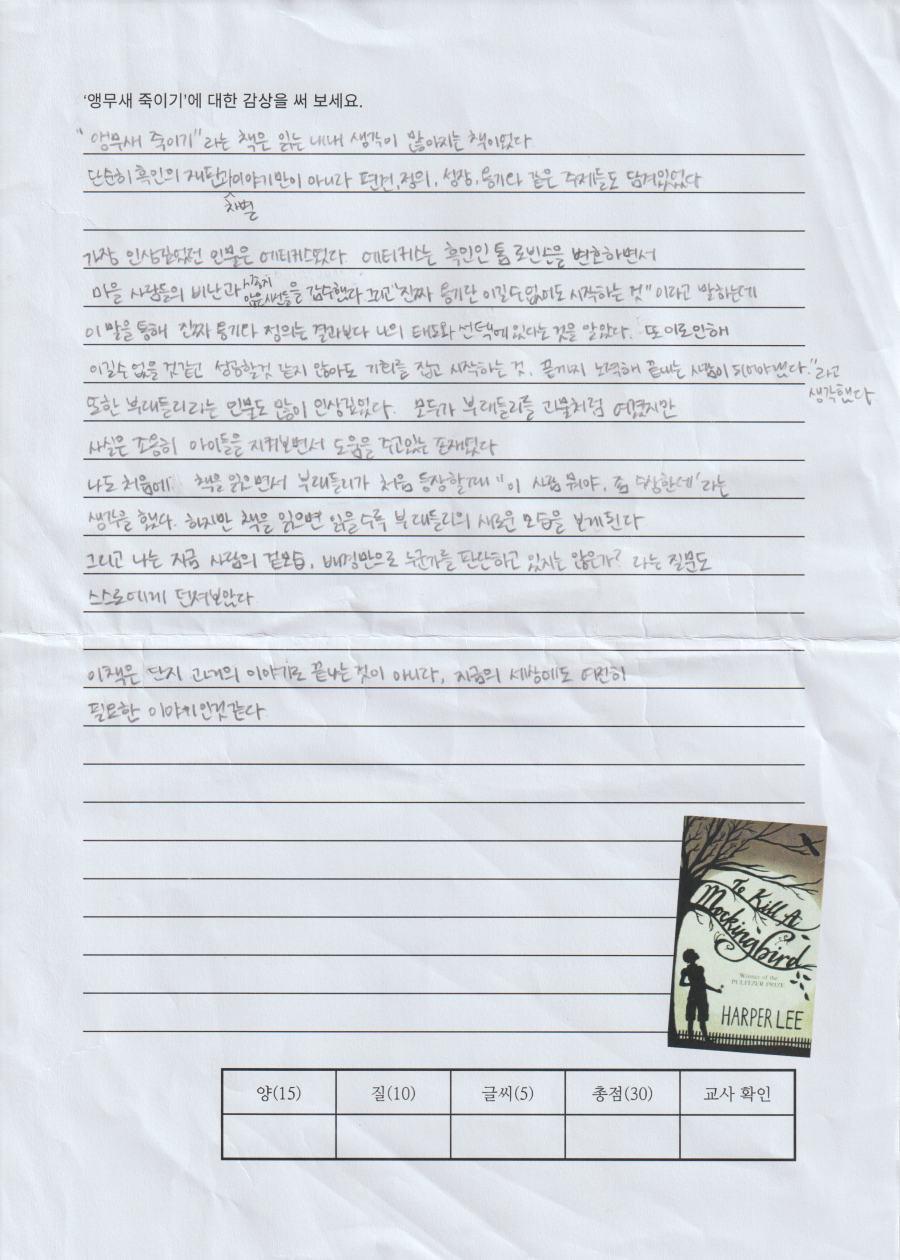 '앵무새 죽이기'에 대한 감상을 써 보세요.
"앵무새 죽이기"라는 책은 읽는 내내 생각이 많아지는 책이었다
단순히 흑인의 재판과이야기만이 아니라 편견, 정의, 성장, 용기와 같은 주제들도 담겨있었다
차별
가장 인상깊었던 인물은 에티커스였다 에티커스는 흑인인 톰 로빈슨을 변호하면서
마을 사람들의 비난과 들을 감수했다 그리고 "진짜 용기란 이길수없어도 시작하는 것"이라고 말하는데
이 말을 통해 진짜 용기와 정의는 결과보다 나의 태도와 선택에 있다는 것을 알았다. 또 이로인해
이길수 없을 것같고 성공할것 같지 않아도 기회를 잡고 시작하는 것, 끝까지 노력해 끝내는 사람이 되어야겠다."라고
생각했다
또한 부래들리라는 인물도 많이 인상깊었다. 모두가 부래들리를 괴물처럼 여겼지만
사실은 조용히 아이들을 지켜보면서 도움을 주고있는 존재였다
나도 처음에 책을 읽으면서 부래들리가 처음 등장할때 "이 사람 뭐야, 좀 수상한데'라는
생각을 했다. 하지만 책을 읽으면 읽을수록 부래들리의 새로운 모습을 보게된다
그리고 나는 지금 사람의 겉모습, 배경만으로 누군가를 판단하고 있지는 않은가? 라는 질문도
스스로에게 던져보았다
이책은 단지 과거의 이야기로 끝나는 것이 아니라, 지금의 세상에도 여전히
필요한 이야기인것같다
To Kill A
Mockingbird
Winner of the
PULITZER PRIZE
HARPER LEE
양(15) 질(10) 글씨(5) 총점(30) 교사 확인